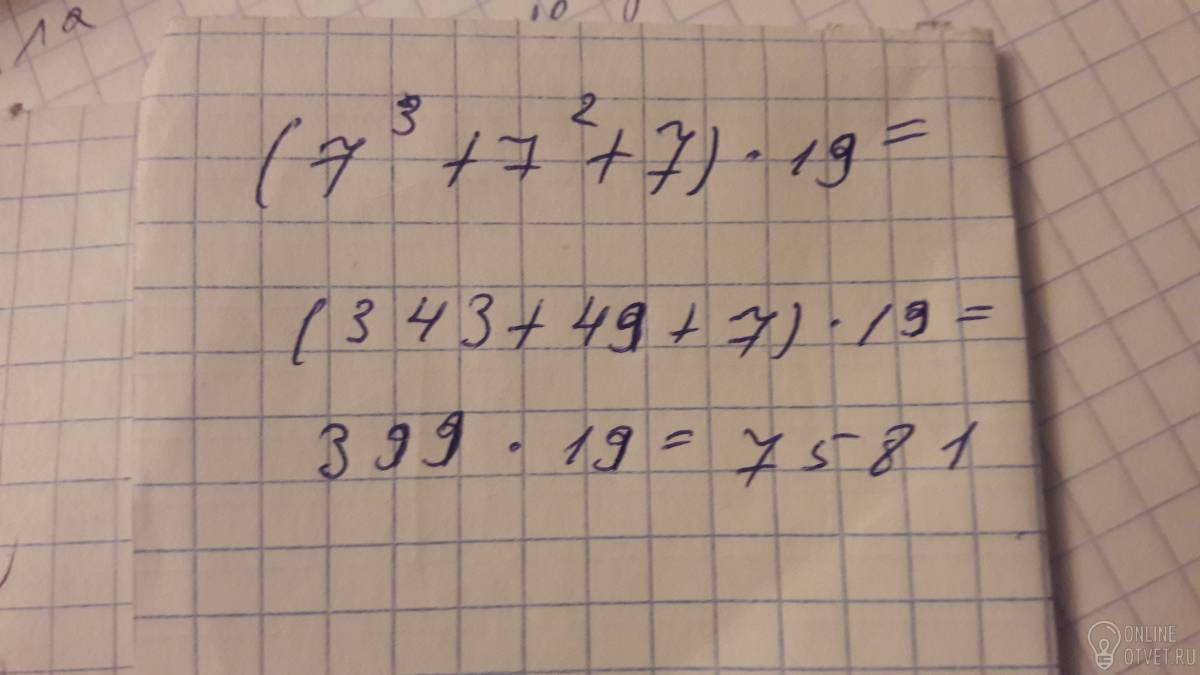 1a
(7³ + 7² + 7) · 19 =
(343 + 49 + 7) · 19 =
399 · 19 = 7581
ONLINE
OTVET.RU